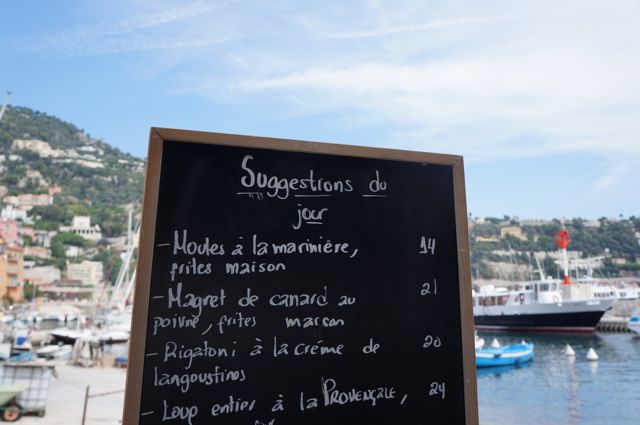 Suggestions du
jour
- Moules à la marinière, 14
frites maison
- Magret de canard au 21
poivre, frites maison
- Rigatoni à la créme de 20
langoustinos
- Loup entier à la PROVENÇALE, 24